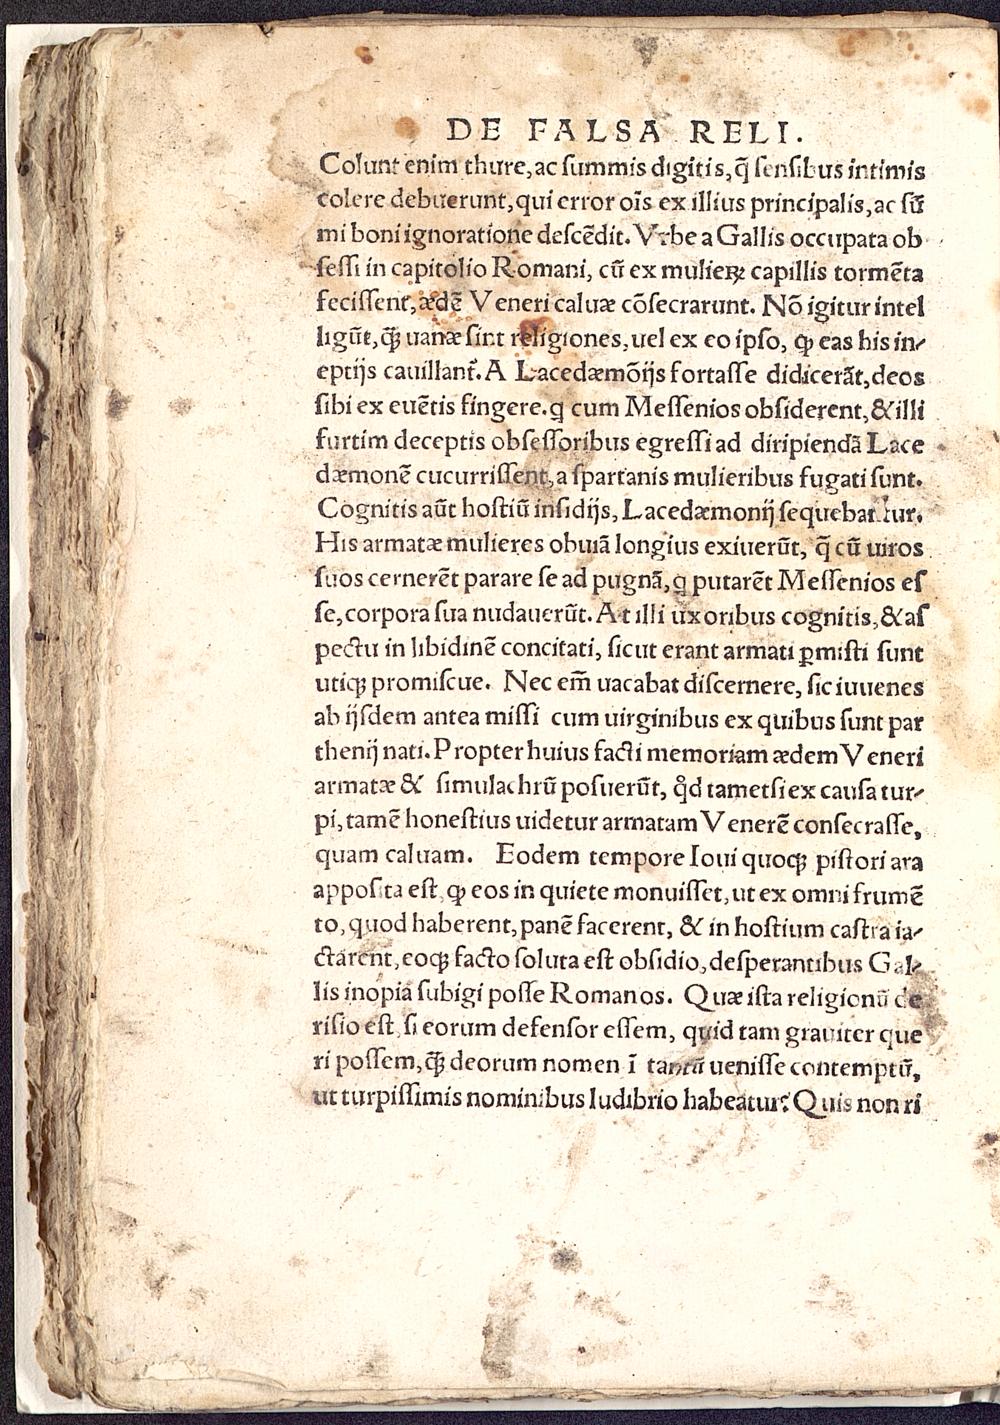 DE FALSA RELI.
Colunt enim thure, ac summis digitis, q̃ sensibus intimis
colere debuerunt, qui error oĩs ex illius principalis, ac sũ
mi boni ignoratione descẽdit. Vrbe a Gallis occupata ob
sessi in capitolio Romani, cũ ex mulieꝝ capillis tormẽta
fecissent, ædẽ Veneri caluæ cõsecrarunt. Nõ igitur intel
ligũt, ꝙ̃ uanæ sint religiones, uel ex eo ipso, ꝙ eas his in-
eptijs cauillant᷑. A Lacedæmõijs fortasse didicerãt, deos
sibi ex euẽtis fingere. q cum Messenios obsiderent, & illi
furtim deceptis obsessoribus egressi ad diripiendã Lace
dæmonẽ cucurrissent, a spartanis mulieribus fugati sunt.
Cognitis aũt hostiũ insidijs, Lacedæmonij sequebantur.
His armatæ mulieres obuiã longius exiuerũt, q̃ cũ uiros
suos cernerẽt parare se ad pugnã, q putarẽt Messenios es
se, corpora sua nudauerũt. At illi uxoribus cognitis, & as
pectu in libidinẽ concitati, sicut erant armati ꝑmisti sunt
utiqꝫ promiscue. Nec em̃ uacabat discernere, sic iuuenes
ab ijsdem antea missi cum uirginibus ex quibus sunt par
thenij nati. Propter huius facti memoriam ædem Veneri
armatæ & simulachrũ posuerũt, qd̉ tametsi ex causa tur-
pi, tamẽ honestius uidetur armatam Venerẽ consecrasse,
quam caluam. Eodem tempore Ioui quoqꝫ pistori ara
apposita est, ꝙ eos in quiete monuisset, ut ex omni frumẽ
to, quod haberent, panẽ facerent, & in hostium castra ia-
ctarent, eoqꝫ facto soluta est obsidio, desperantibus Gal-
lis inopia subigi posse Romanos. Quæ ista religionũ de
risio est, si eorum defensor essem, quid tam grauiter que
ri possem, ꝙ̃ deorum nomen ĩ tantũ uenisse contemptũ,
ut turpissimis nominibus ludibrio habeatur? Quis non ri